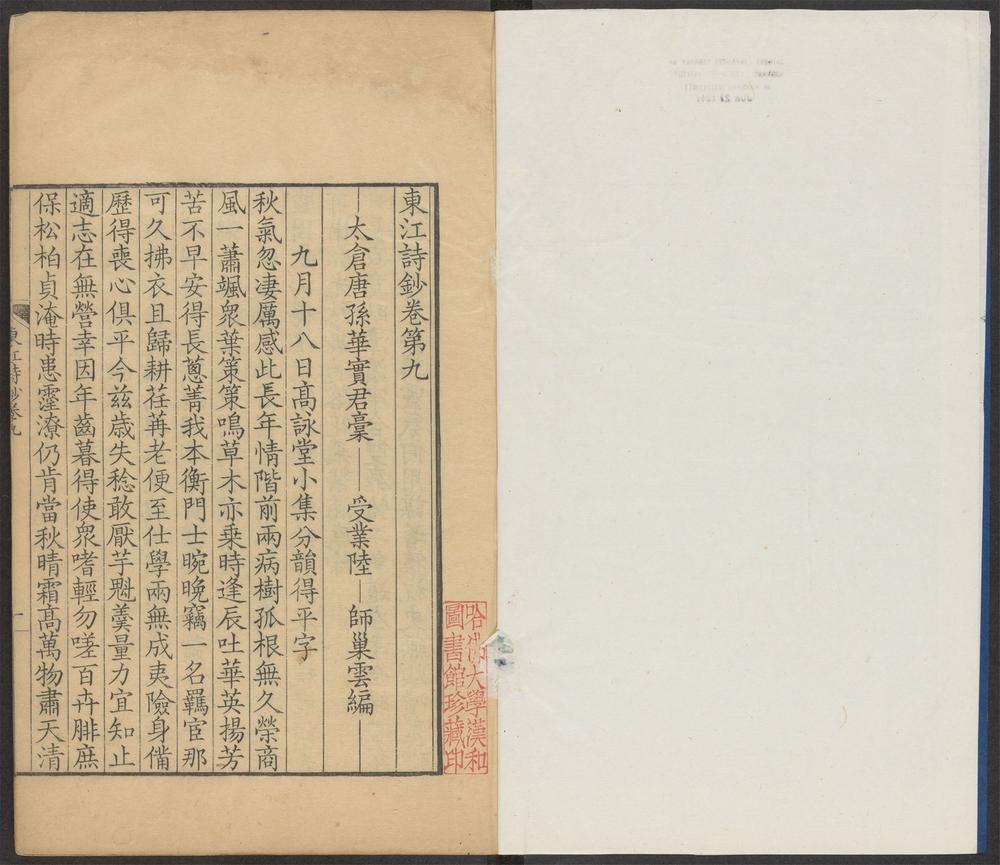 東江詩鈔卷第九
太倉唐孫華實君稾 受業陸 師巢雲編
九月十八日髙詠堂小集分韻得平字
秋氣忽凄厲感此長年情階前兩病樹孤根無久榮商
風一蕭颯衆葉策策鳴草木亦乗時逢辰吐華英揚芳
苦不早安得長蔥菁我本衡門士晼晚竊一名羈宦那
可久拂衣且歸耕荏苒老便至仕學兩無成夷險身備
歷得喪心俱平今兹歳失稔敢厭芋魁羹量力宜知止
適志在無營幸因年齒暮得使衆嗜輕勿嗟百卉腓庶
保松柏貞淹時患霪潦仍肯當秋晴霜髙萬物肅天清
東江詩鈔卷九
一
哈佛大學漢和
圖書館珍藏印
JUN 21 1941